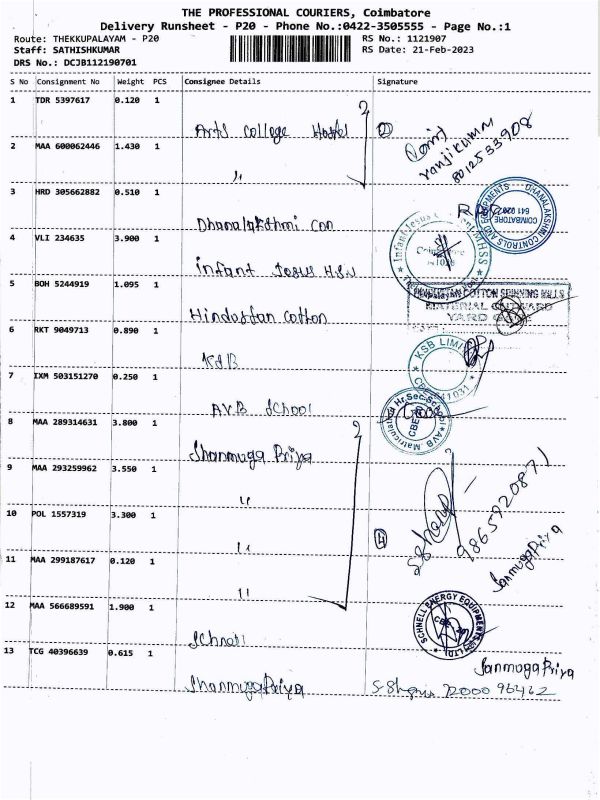 THE PROFESSIONAL COURIERS, Coimbatore
Delivery Runsheet - P20 - Phone No.:0422-3505555 - Page No.:1
Route: THEKKUPALAYAM - P20 RS No.: 1121907
Staff: SATHISHKUMAR RS Date: 21-Feb-2023
DRS No.: DCJB112190701
S No Consignment No Weight PCS Consignee Details Signature
1 TDR 5397617 0.120 1
Arts College Hostel 2
2 MAA 600062446 1.430 1
ranjikumar
8012533908
"
3 HRD 305662882 0.510 1
DHANALAKSHMI CONTROLS AND EQUIPMENTS COIMBATORE 641 020
Dhanalakshmi Con
4 VLI 234635 3.900 1
Infant Jesus
MHSS
Infant Jesus HSS
5 BOH 5244919 1.095 1
HINDUSTAN COTTON SPINNING MILLS
MATERIAL ONWARD
YARD
Hindustan Cotton
6 RKT 9049713 0.890 1
KSB LIMI
KSB
7 IXM 503151270 0.250 1
AVB Matriculation Hr.Sec.School
AVB School
8 MAA 289314631 3.800 1
Shanmuga Priya
9 MAA 293259962 3.550 1
"
10 POL 1557319 3.300 1
4
9865920871
SanmugaPriya
"
11 MAA 299187617 0.120 1
"
12 MAA 566689591 1.900 1
SCHNELL ENERGY EQUIPMENTS
Schnell
13 TCG 40396639 0.615 1
SanmugaPriya
ShanmugaPriya